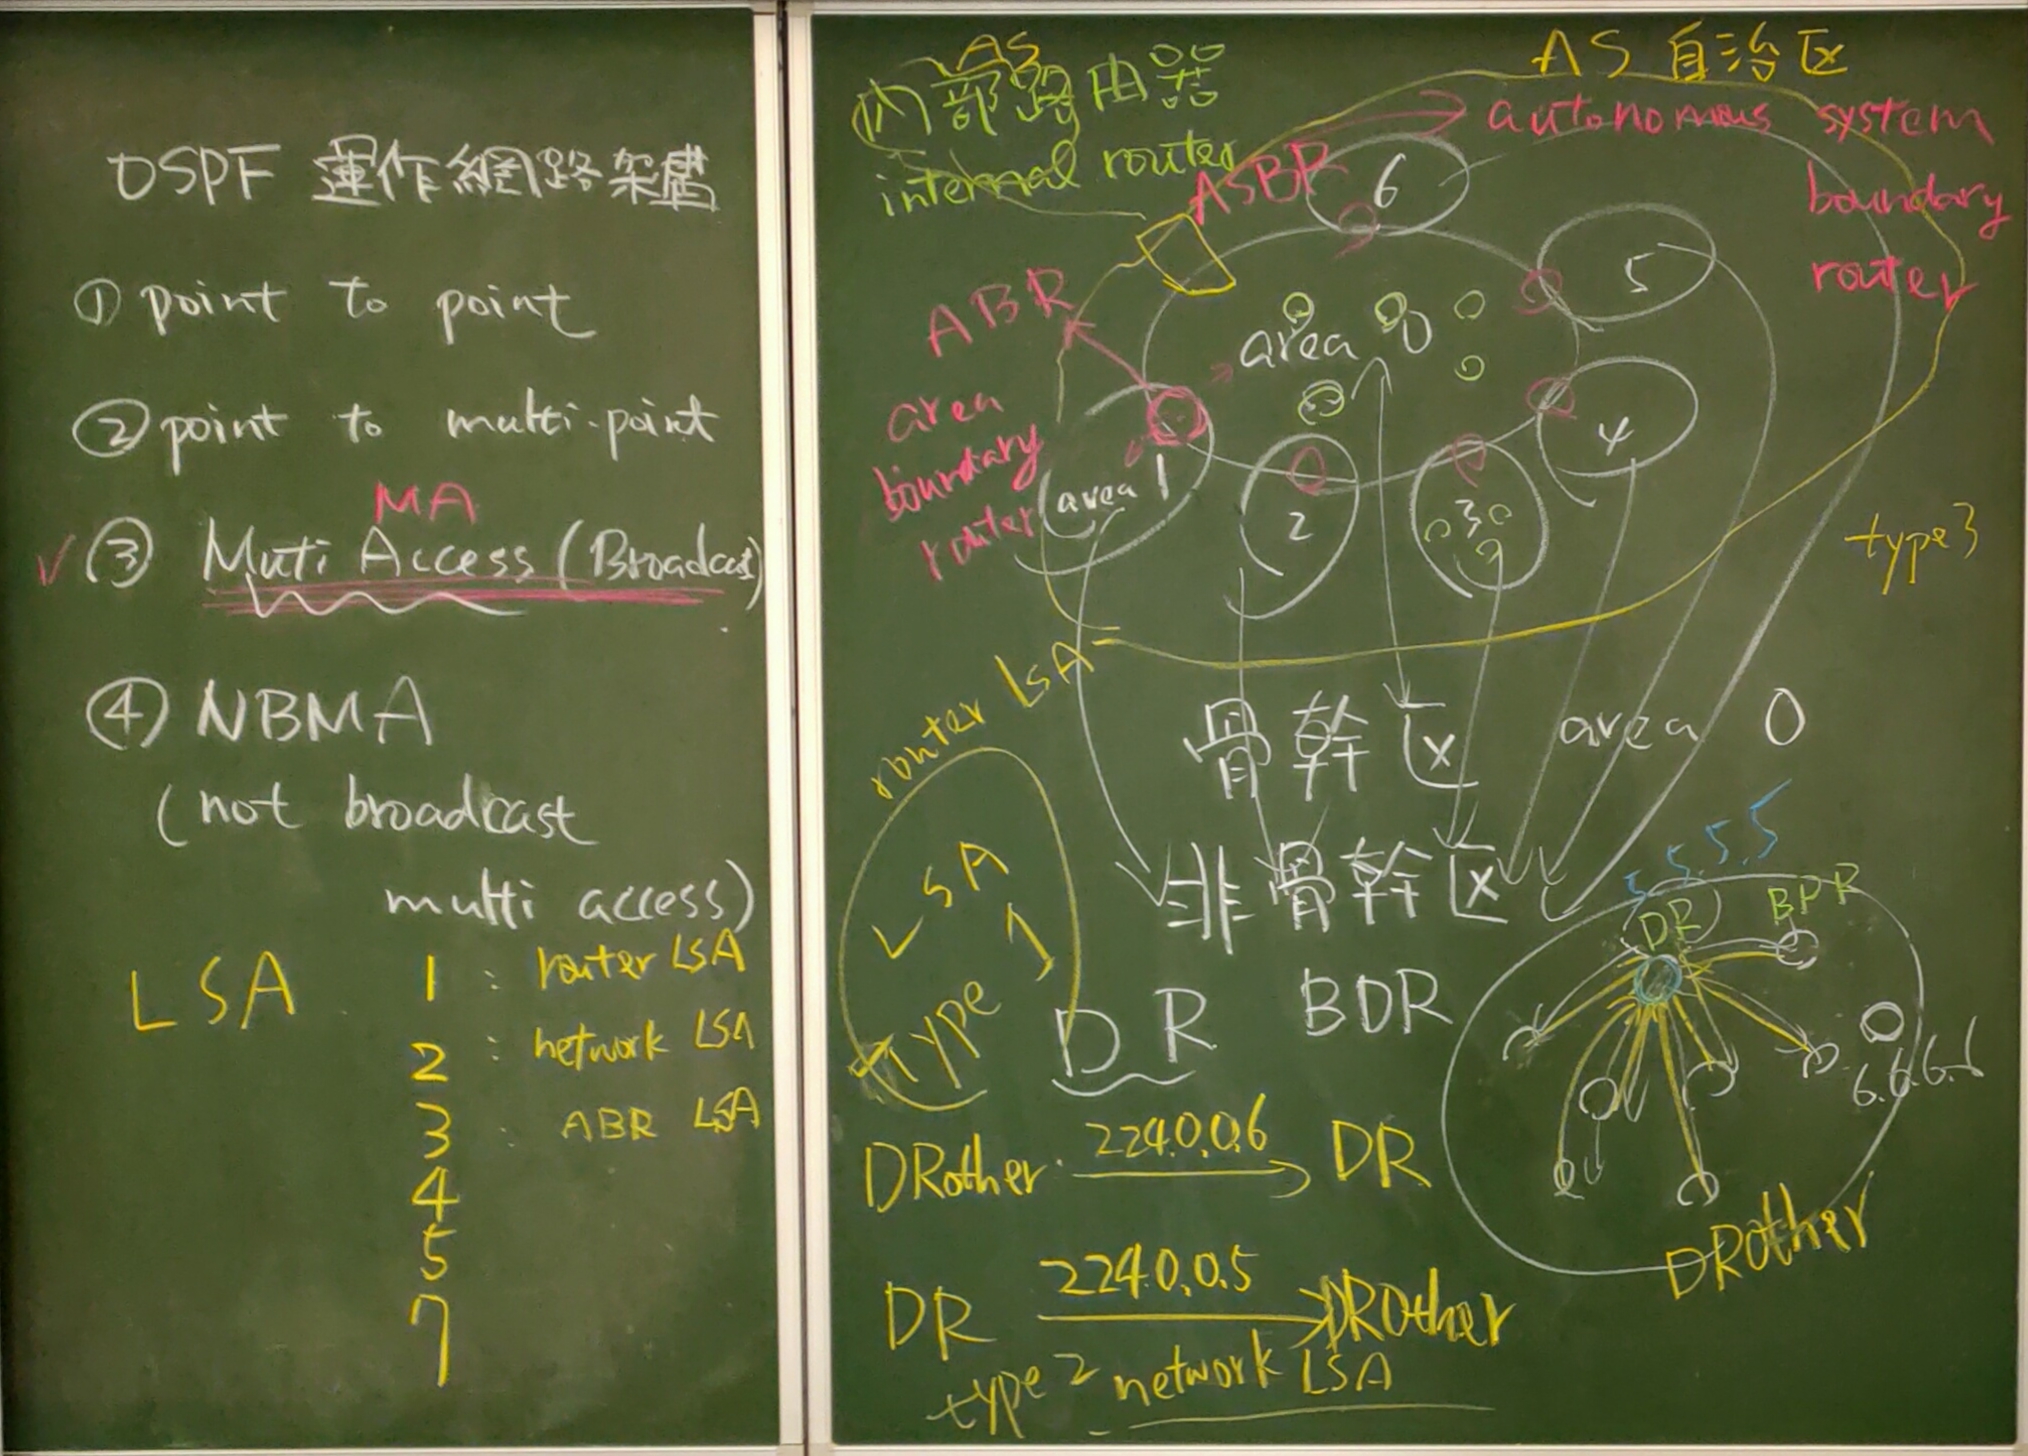 OSPF 運作網路架構
① point to point
② point to multi-point
MA
③ Muti Access (Broadcast)
④ NBMA
(not broadcast
multi access)
LSA
1 : router LSA
2 : network LSA
3 : ABR LSA
4
5
7
AS
內部路由器
internal router
AS 自治区
autonomous system
boundary
router
ASBR
6
5
ABR
area 0
area
boundary
router
area 1
2
3
4
type 3
router LSA
骨幹区 area 0
非骨幹区
LSA
type 1
DR BDR
5.5.5.5
DR
BPR
6.6.6.6
DRother
DRother 224.0.0.6 DR
DR 224.0.0.5 DROther
type 2 network LSA